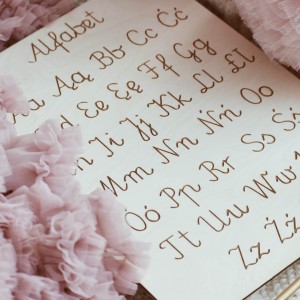 Alfabet
Aa Ąą Bb Cc Ćć
Ee Ęę Ff Gg
Ii Jj Kk Ll Łł
Mm Nn Ńń Oo
Óó Pp Rr Ss Śś
Tt Uu Ww
Zz Źź